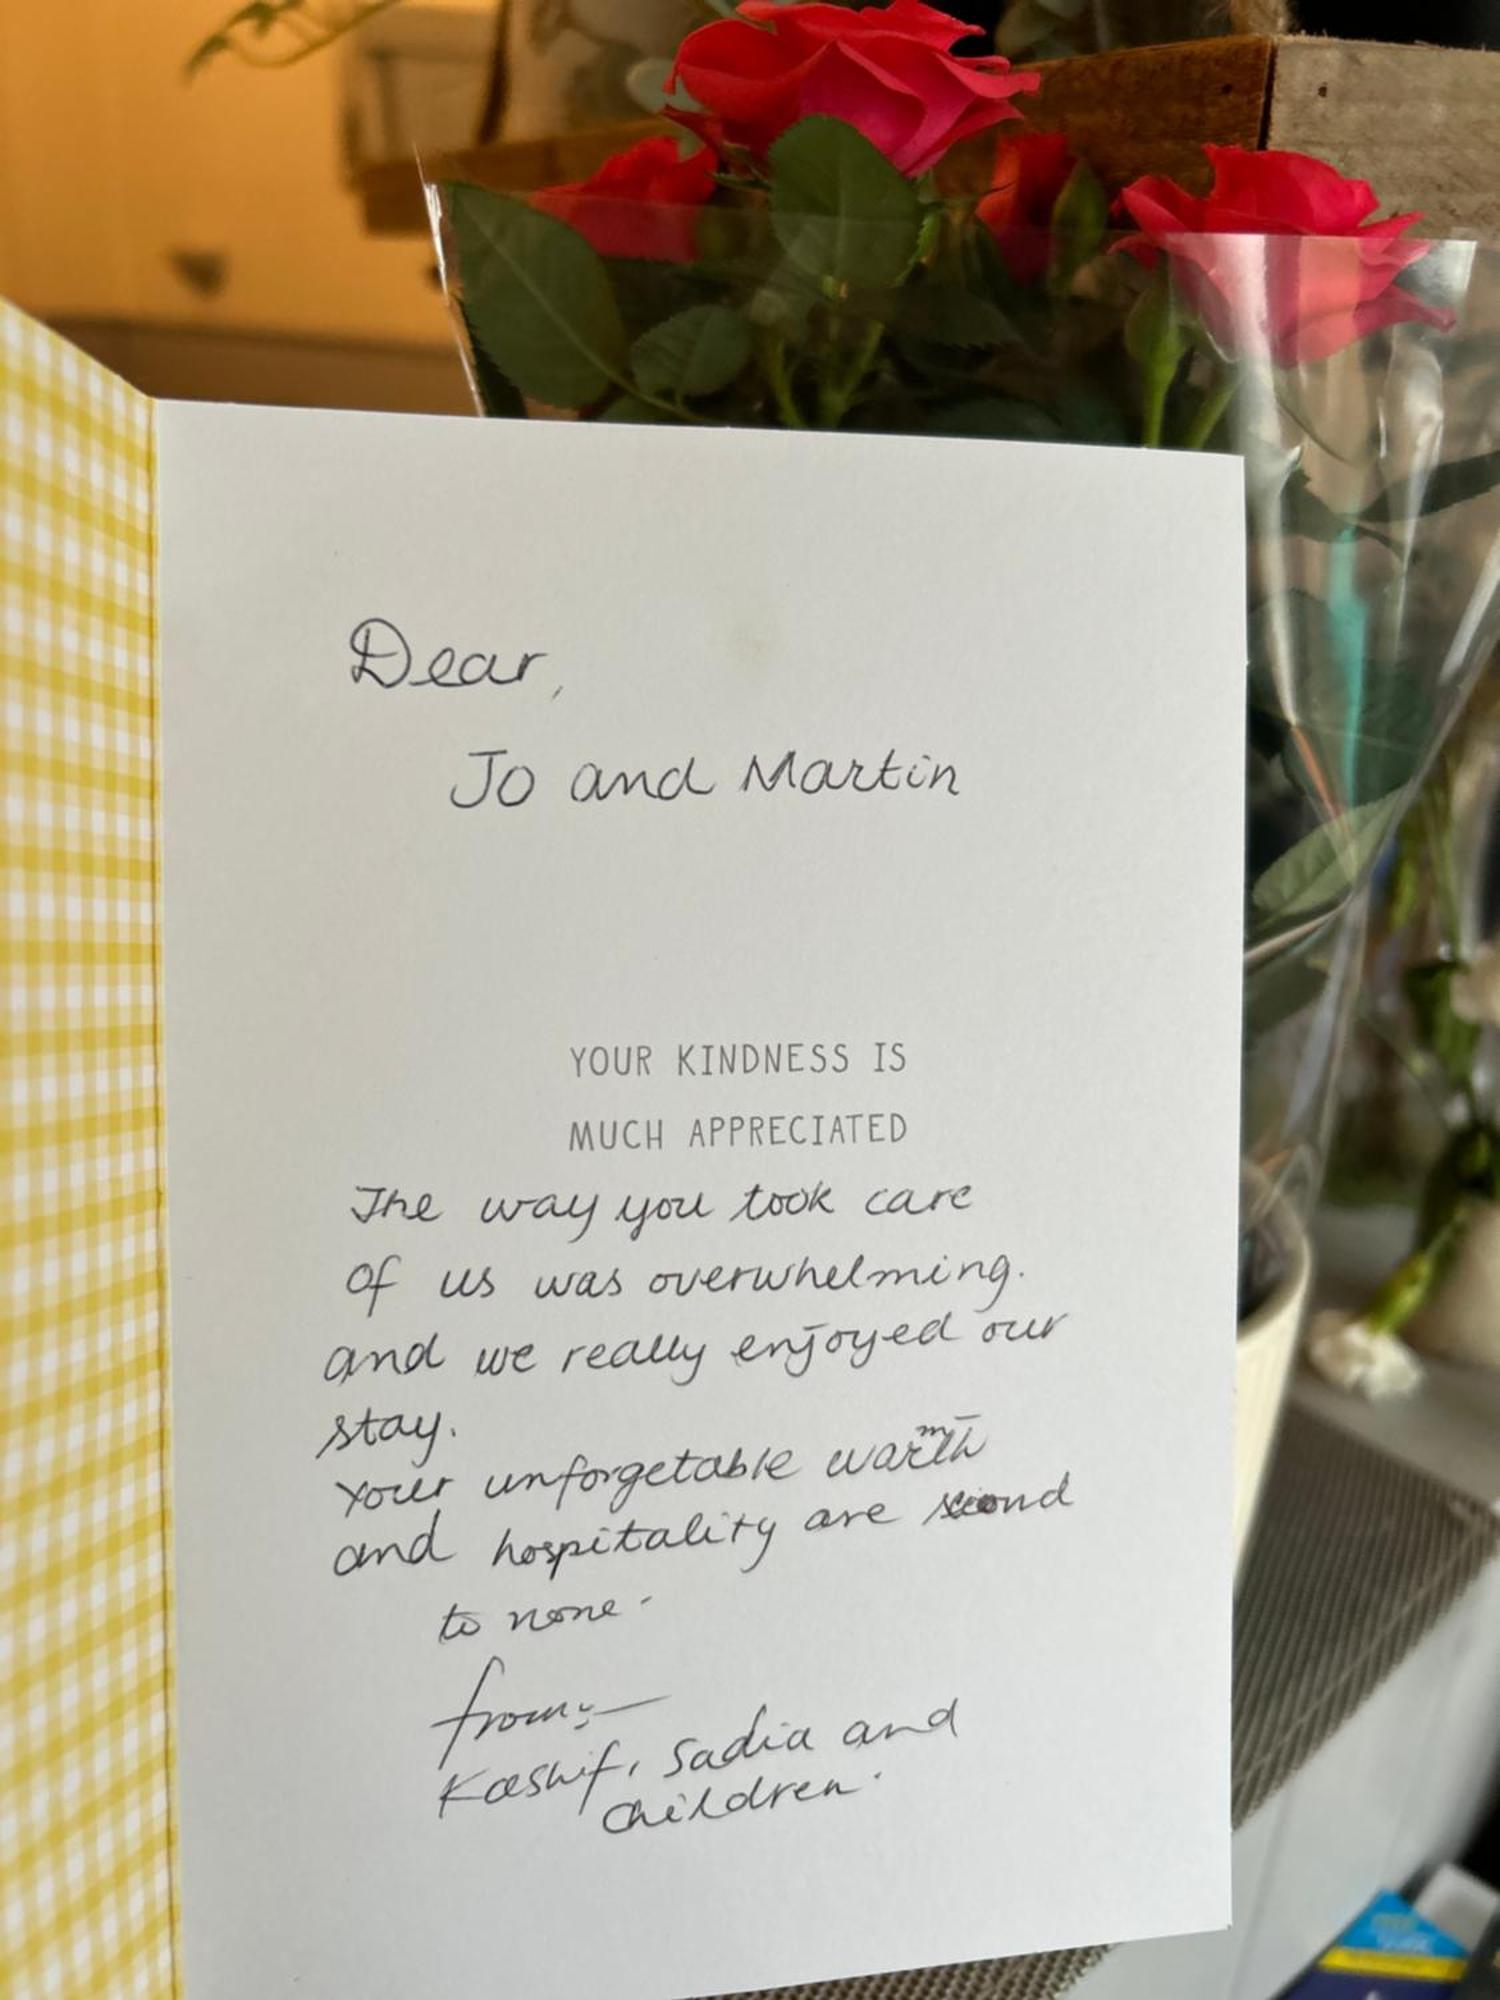 Dear,
Jo and Martin
YOUR KINDNESS IS
MUCH APPRECIATED
The way you took care
of us was overwhelming.
and we really enjoyed our
stay.
Your unforgetable warmth
and hospitality are second
to none.
from:-
Kashif, Sadia and
children.